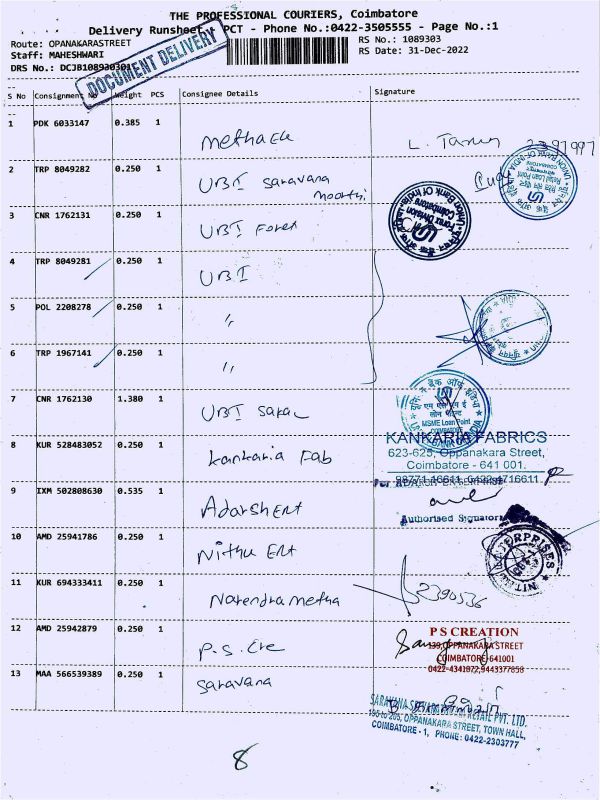 THE PROFESSIONAL COURIERS, Coimbatore
Delivery Runsheet PCT - Phone No.:0422-3505555 - Page No.:1
Route: OPANAKARASTREET
RS No.: 1089303
Staff: MAHESHWARI
RS Date: 31-Dec-2022
DRS No.: DCJB108930301
DOCUMENT DELIVERY
S No Consignment No Weight PCS Consignee Details Signature
1 PDK 6033147 0.385 1
2 TRP 8049282 0.250 1 UBI Saravana
3 CNR 1762131 0.250 1 UBI Forex
4 TRP 8049281 0.250 1 UBI
5 POL 2208278 0.250 1 "
6 TRP 1967141 0.250 1 "
7 CNR 1762130 1.380 1 UBI
MSME Loan Point
COIMBATORE
8 KUR 528483052 0.250 1 Kankaria Fab
KANKARIA FABRICS
623-625, Oppanakara Street,
Coimbatore - 641 001.
9 IXM 502808630 0.535 1 Adarsh Ent
Authorised Signatory
10 AMD 25941786 0.250 1 Nithu Ent
11 KUR 694333411 0.250 1 Narendra metha 2390536
12 AMD 25942879 0.250 1 P.S. Cre
P S CREATION
139, OPPANAKARA STREET
COIMBATORE-641001
0422-4341072,9443377858
13 MAA 566539389 0.250 1 Saravana
195 to 205, OPPANAKARA STREET, TOWN HALL,
COIMBATORE - 1, PHONE: 0422-2303777
8